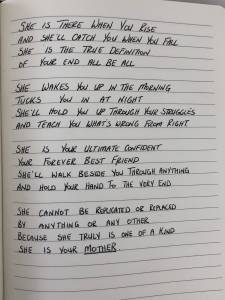 SHE IS THERE WHEN YOU RISE
AND SHE'LL CATCH YOU WHEN YOU FALL
SHE IS THE TRUE DEFINITION
OF YOUR END ALL BE ALL
SHE WAKES YOU UP IN THE MORNING
TUCKS YOU IN AT NIGHT
SHE'LL HOLD YOU UP THROUGH YOUR STRUGGLES
AND TEACH YOU WHAT'S WRONG FROM RIGHT
SHE IS YOUR ULTIMATE CONFIDENT
YOUR FOREVER BEST FRIEND
SHE'LL WALK BESIDE YOU THROUGH ANYTHING
AND HOLD YOUR HAND TO THE VERY END
SHE CANNOT BE REPLICATED OR REPLACED
BY ANYTHING OR ANY OTHER
BECAUSE SHE TRULY IS ONE OF A KIND
SHE IS YOUR MOTHER.